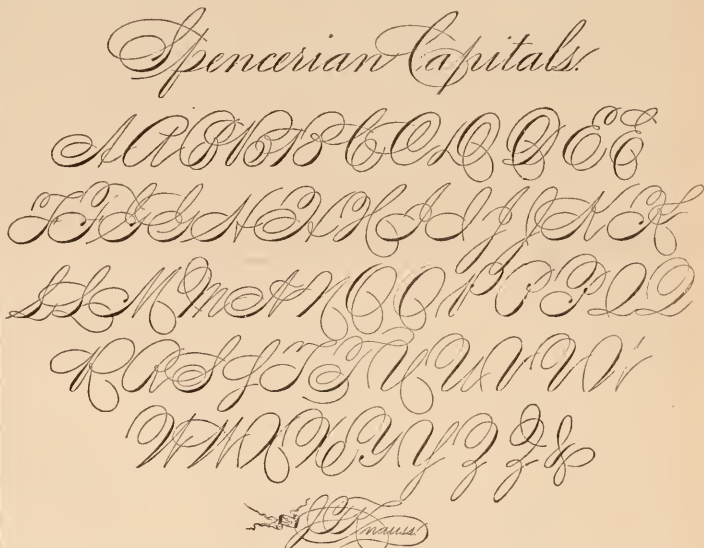 Spencerian Capitals.
A A B B B C C D D E E
F F G G H H H I I J J K K
L L M M N N O O P P P Q Q
R R S S T T U U V V W
W W X X Y Y Z Z &
Knauss